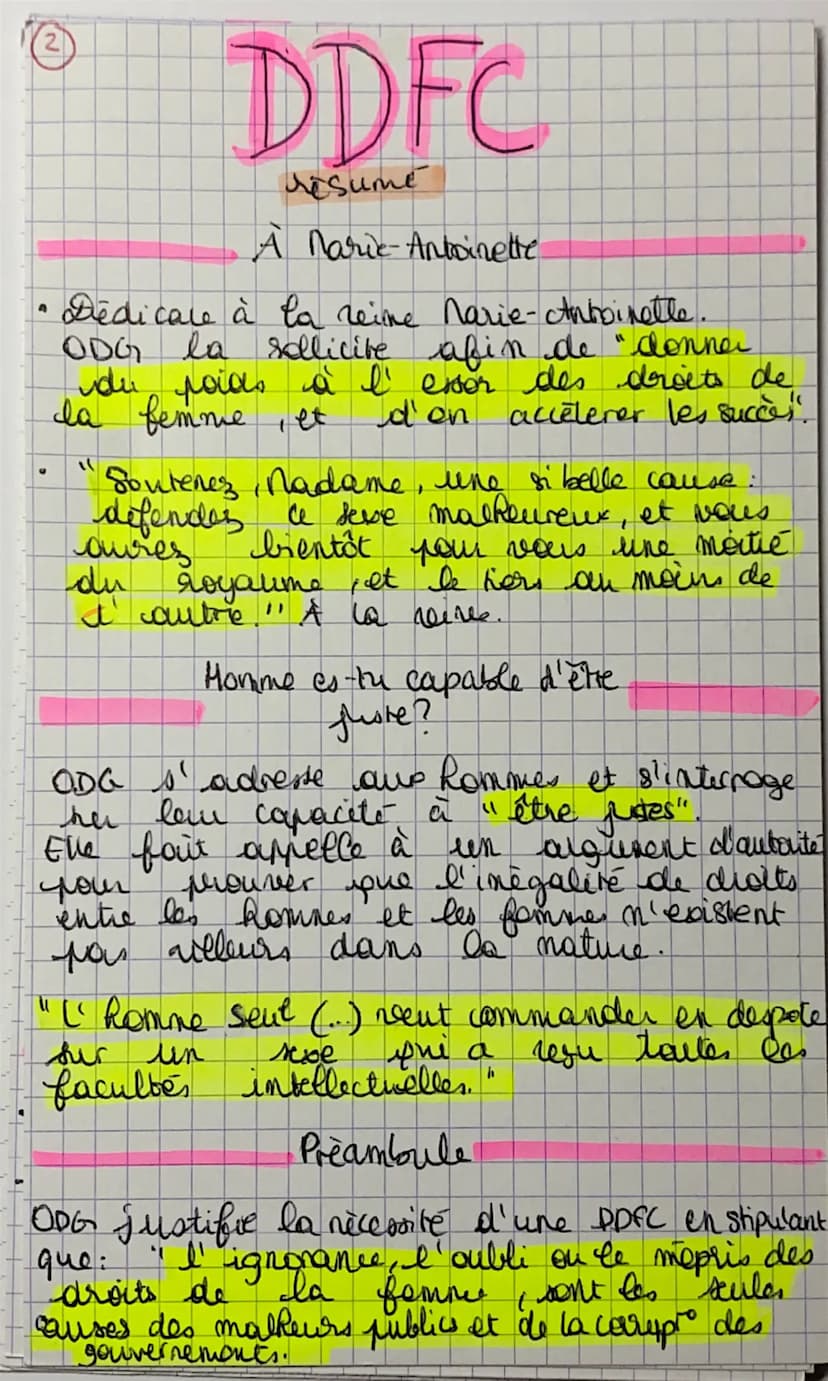 2
DDFC
résumé
À Marie-Antoinette
• Dédicace à la reine Marie-Antoinette.
ODG la sollicite afin de "donner
du poids à l'essor des droits de
la femme, et d'en accélerer les succès".
• "Soutenez, Madame, une si belle cause :
défendez ce sexe malheureux, et vous
aurez bientôt pour vous une moitié
du royaume, et le tiers au moins de
l'autre." À la reine.
Homme es-tu capable d'être
juste?
ODG s'adresse aux hommes et s'interroge
sur leur capacité à "être justes".
Elle fait appelle à un argument d'autorité
pour prouver que l'inégalité de droits
entre les hommes et les femmes n'existent
pas ailleurs dans la nature.
"L'homme seul (...) veut commander en despote
sur un sexe qui a reçu toutes les
facultés intellectuelles."
Préambule
ODG justifie la nécessité d'une DDFC en stipulant
que: "l'ignorance, l'oubli ou le mépris des
droits de la femme, sont les seules
causes des malheurs publics et de la corrupt° des
gouvernements.